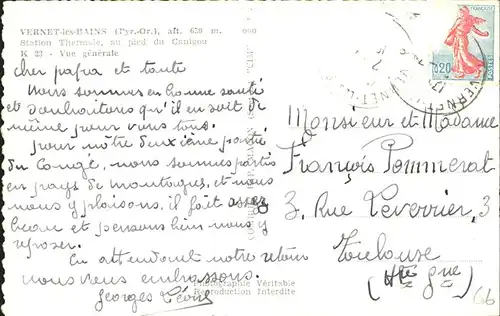 VERNET-les-BAINS (Pyr.-Or.), alt. 620 m.
Station Thermale, au pied du Canigou
K 23 - Vue générale
cher papa et tante
Nous sommes en bonne santé
et souhaitons qu'il en soit de
même pour vous tous.
Pour notre deuxième partie
du Congé, nous sommes partis
en pays de montagnes, et nous
nous y plaisons, il fait assez
beau et pensons bien nous y
reposer.
En attendant notre retour
nous vous embrassons.
Georges
Monsieur et Madame
François Pommerat
3, Rue Leverrier, 3
Toulouse
(Hte Gne)
Photographie Véritable
Reproduction Interdite
0,20
POSTES
66